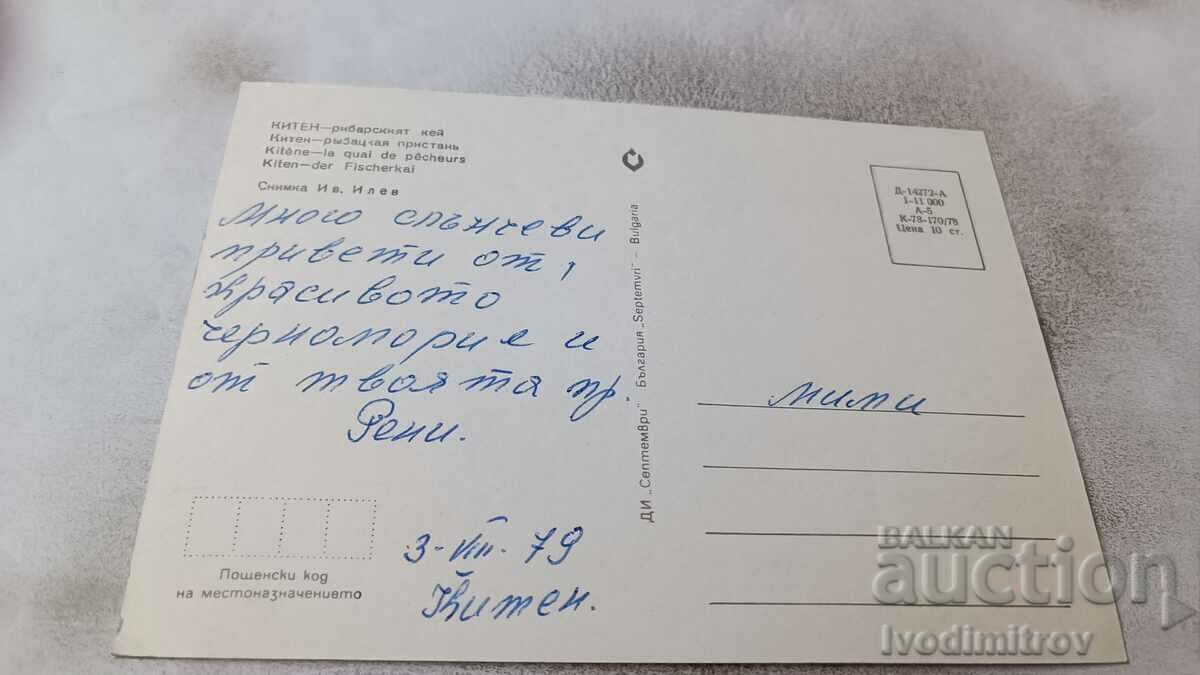 КИТЕН—рибарският кей
Китен—рыбацкая пристань
Kitène—la quai de pêcheurs
Kiten—der Fischerkai
Снимка Ив. Илев
Много слънчеви
привети от,
красивото
черноморие и
от твоята пр.
Рени.
3-VIII-79
Китен.
Пощенски код
на местоназначението
ДИ „Септември" България „Septemvri" — Bulgaria
Д-14272-А
1-11 000
А-5
К-78-170/78
Цена 10 ст.
мими
BALKAN
auction
Ivodimitrov